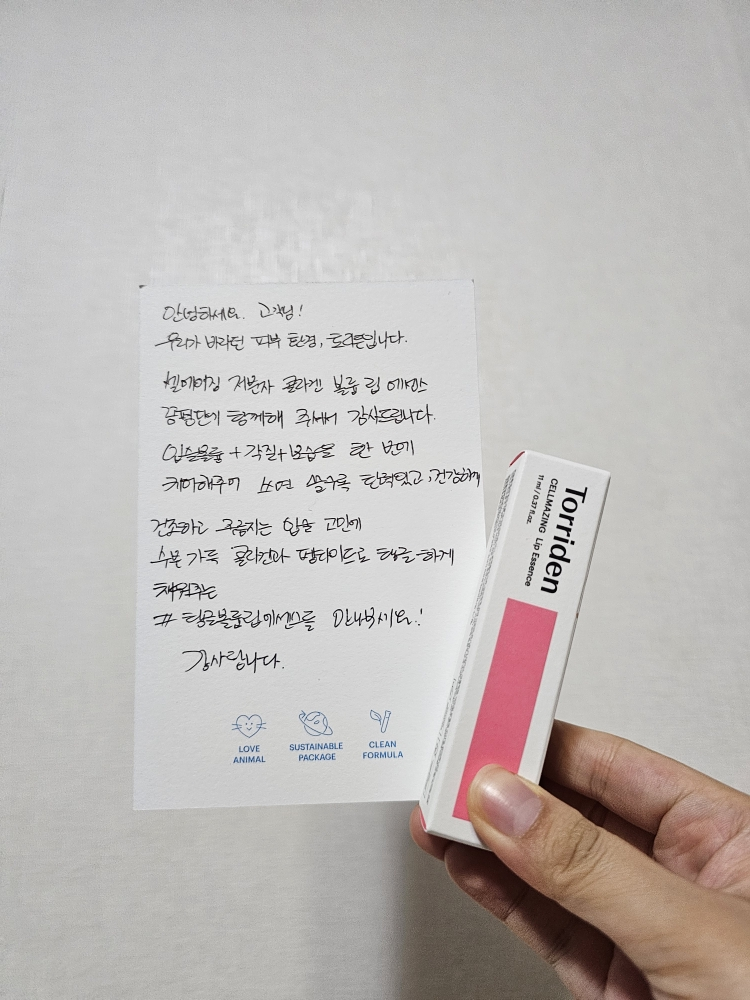 안녕하세요. 고객님!
우리가 바라던 피부 환경, 토리든입니다.
셀메이징 저분자 콜라겐 볼륨 립 에센스
꿈평단이 함께해 주셔서 감사드립니다.
입술볼륨 + 각질 + 보습을 한 번에
케어해주어 쓰면 쓸수록 탄력있고, 건강하게
건조하고 주름지는 입술 고민에
수분 가득 콜라겐과 펩타이드로 탱글-하게
채워주는
# 탱글볼륨립에센스를 만나보세요!
감사합니다.
LOVE ANIMAL
SUSTAINABLE PACKAGE
CLEAN FORMULA
Torriden
CELLMAZING Lip Essence
11 ml / 0.37 fl.oz.